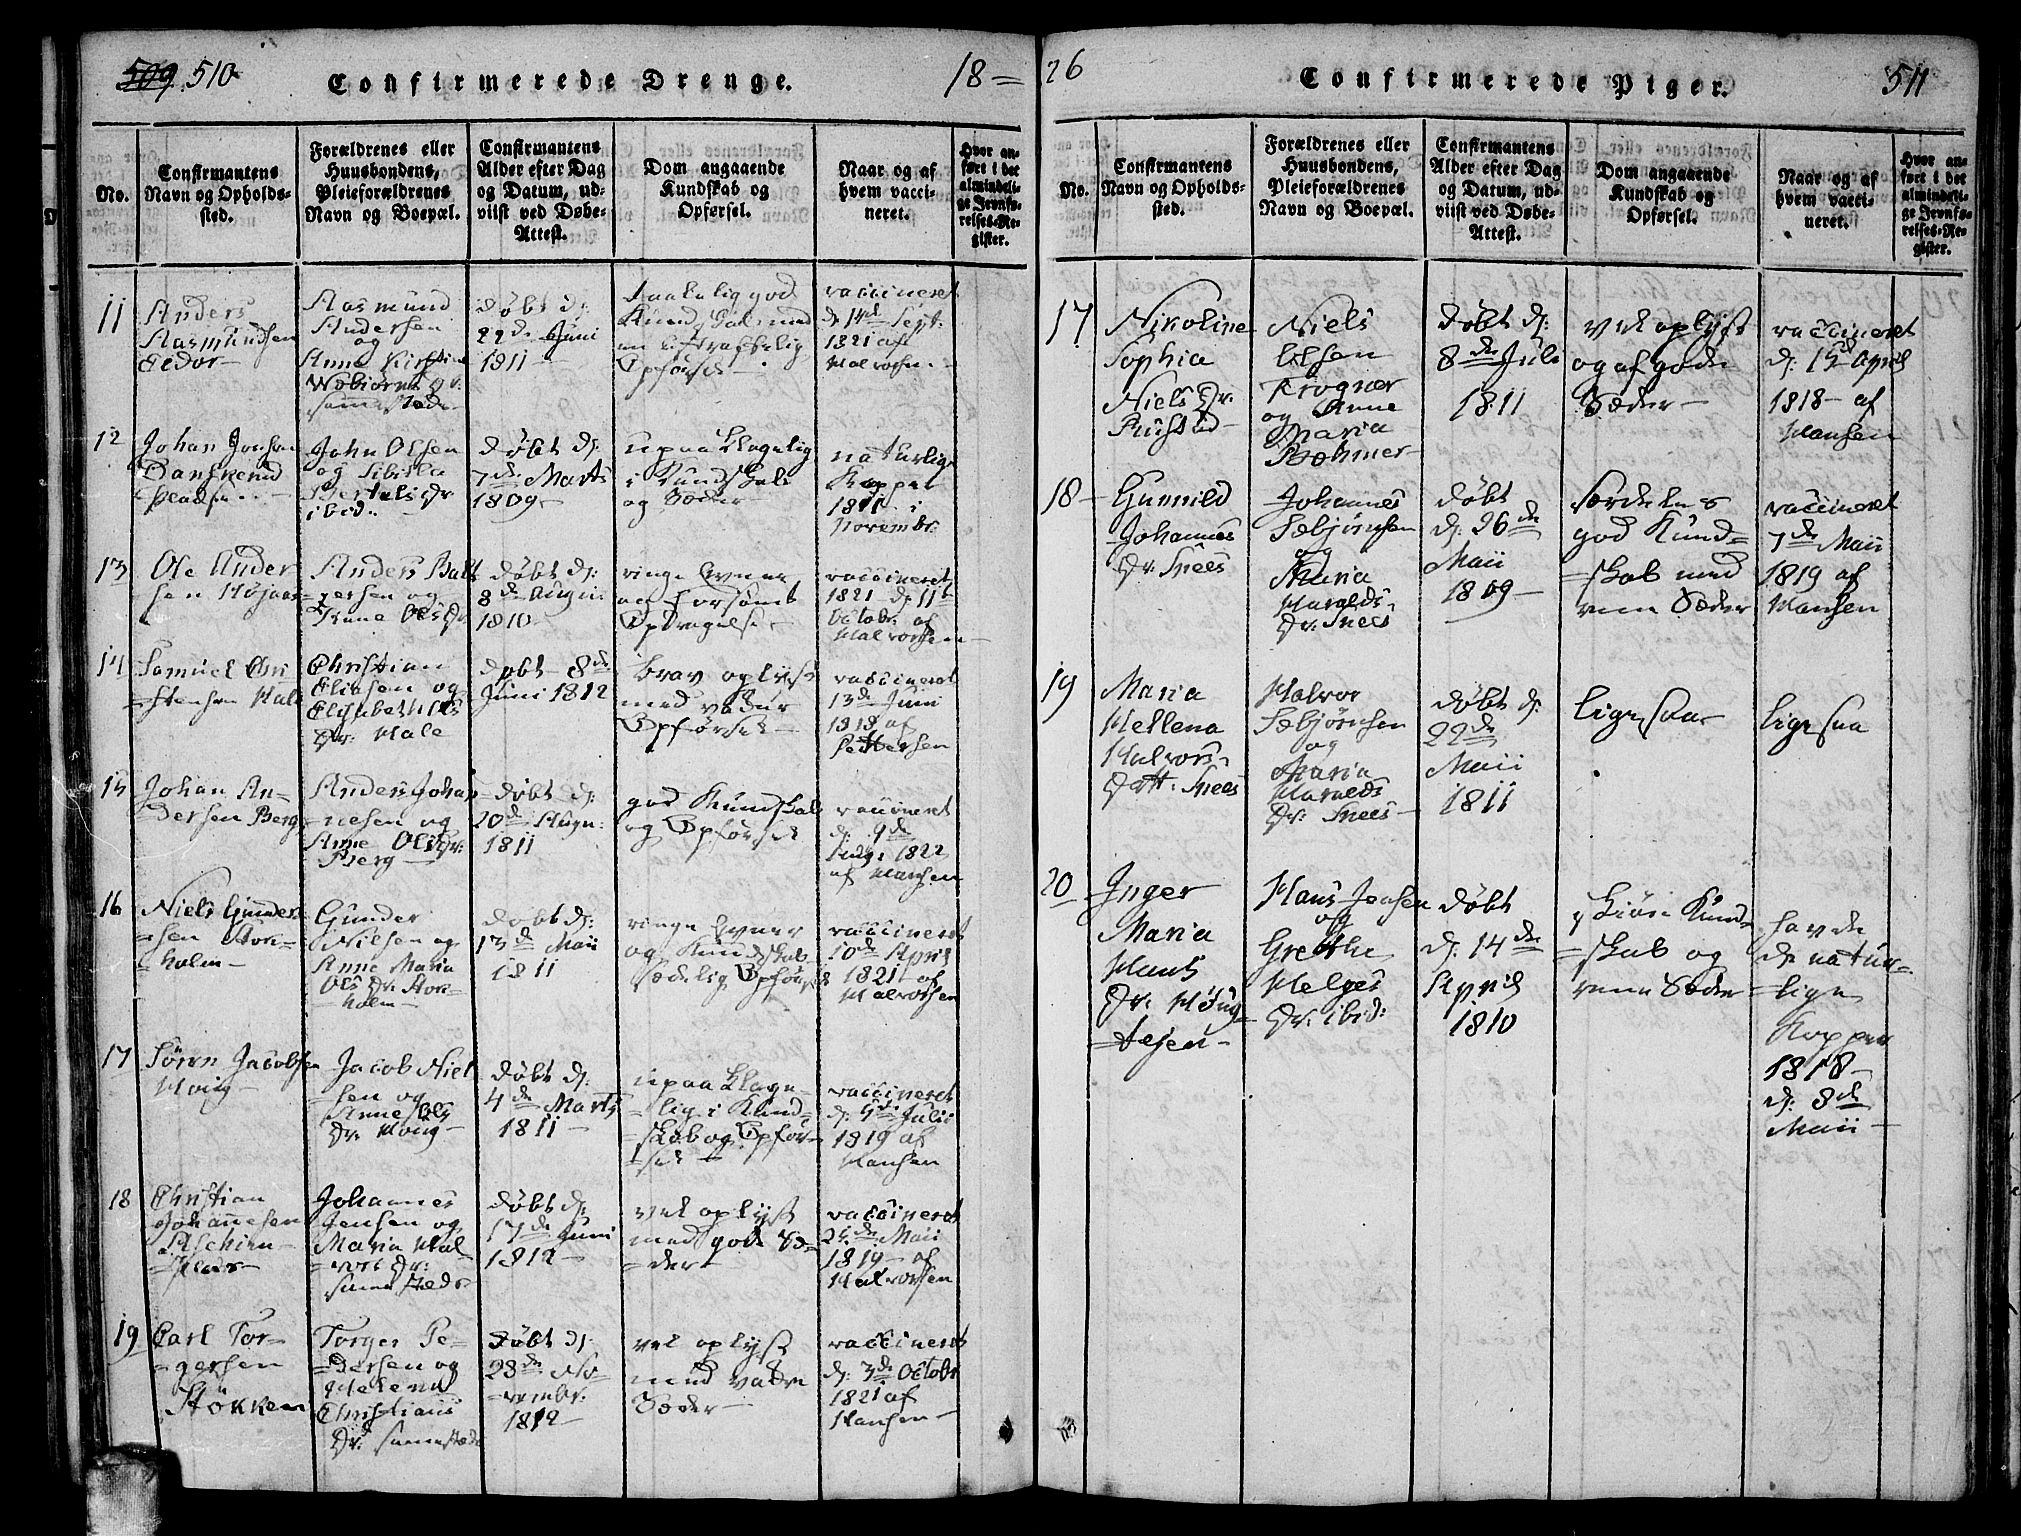 509 510
Confirmerede Drenge.
18 =
No.
Confirmantens
Navn og Opholds-
sted.
Forældrenes eller
Huusbondens,
Pleieforældrenes
Navn og Boepæl.
Confirmantens
Alder efter Dag
og Datum, ud-
viist ved Døbe-
Attest.
Dom angaaende
Kundskab og
Opførsel.
Naar og af
hvem vacci-
neret.
Hvor an-
ført i det
almindeli-
ge Jevnfø-
relses-Re-
gister.
11
Anders
Aasmundsen
Aasmund
Andersen
og
Anne Kirstine
samestæde
døbt d:
22de Juni
1811
Kundskab med
en ustraffelig
Opførsel
vaccineret
d: 14de Sept:
1821 af
Halvorsen
12
Johan Jonsen
John Olsen
og
Bertels Dr
ibid.
døbt d:
7de Marts
1809
upaaklagelig
i Kundskab
og Sæder
naturlige
Kopper
1811 i
Novembr.
13
Ole Ander
sen
Anders
sen og
Anne Ols Dr
døbt d:
8de Augu:
1810
ringe Evner
og forsømt
Opdragelse
vaccineret
1821 d: 11te
Octobr. af
Halvorsen
14
Samuel Chri
=stensen Hale
Christian
Eliasen og
Elisabeth Ols
Dr: Hale
døbt 8de
Juni 1812
brav oplyst
med
Opførsel
vaccineret
13de Juni
1818 af
Pettersen
15
Johan An-
dersen Berg
Anders Johan-
=nesen og
Anne Ols Dr:
Berg
døbt d:
20de Augu:
1811
god Kundskab
og Opførsel
vaccineret
d: 9de
1822
af Hansen
16
Niels Gunder
=sen Stor-
=holm
Gunder
Nilsen og
Anne Maria
Ols Dr: Stor-
holm
døbt d:
13de Maii
1811
ringe Evner
og Kundskab
sædelig Opførsel
vaccineret
10de April
1821 af
Halvorsen
17
Søren Jacobsen
Houg
Jacob Niel
sen og
Anne Ols
Dr. Houg
døbt d:
4de Marts
1811
upaaklage-
=lig i Kund-
=skab og Opfør-
=sel
vaccineret
d: 5te Julii
1819 af
Hansen
18
Christian
Johannesen
Johannes
Jensen og
Maria Hal
=vors Dr:
sammestæds
døbt d:
17de Juni
1812
vel oplyst
med gode Sæ-
=der
vaccineret
25de Maii
1819 af
Halvorsen
19
Carl Tor-
=gersen
Stokken
Torger Pe-
=dersen og
Helena
Christians
Dr: sammestæds
døbt d:
28de No-
=vembr.
1812
vel oplyst
med vakre
Sæder
vaccineret
d: 3de Octobr
1821 af
Hansen
26
Confirmerede Piger.
511
No.
Confirmantens
Navn og Opholds-
sted.
Forældrenes eller
Huusbondens,
Pleieforældrenes
Navn og Boepæl.
Confirmantens
Alder efter Dag
og Datum, ud-
viist ved Døbe-
Attest.
Dom angaaende
Kundskab og
Opførsel.
Naar og af
hvem vacci-
neret.
Hvor an-
ført i det
almindeli-
ge Jevnfø-
relses-Re-
gister.
17
Nikoline
Sophia
Niels Dr:
Rustad
Niels
Olsen
Krognær
og Anne
Maria
Bøhmer
døbt d:
8de Juli
1811
vel oplyst
og af gode
Sæder
vaccineret
d: 15de April
1818 af
Hansen
18
Gunnild
Johannes
Dr: Snees
Johannes
Sebjørnsen
og
Maria
Haralds
Dr: Snees
døbt
d: 26de
Maii
1809
særdeles
god Kund=
=skab med
rene Sæder
vaccineret
7de Maii
1819 af
Hansen
19
Maria
Hellena
Halvors-
Datt: Snees
Halvor
Sebjørnsen
og
Maria
Haralds
Dr: Snees
døbt d:
22de
Maii
1811
ligesaa
ligesaa
20
Inger
Maria
Hans
Dr: Houg-
=tejen
Hans Jensen
og
Grethe
Helges
Dr: ibid:
døbt
d: 14de
April
1810
skiøn Kund-
=skab og
rene Sæder
havde
de natur-
=lige
Kopper
1818
d: 8de
Maii